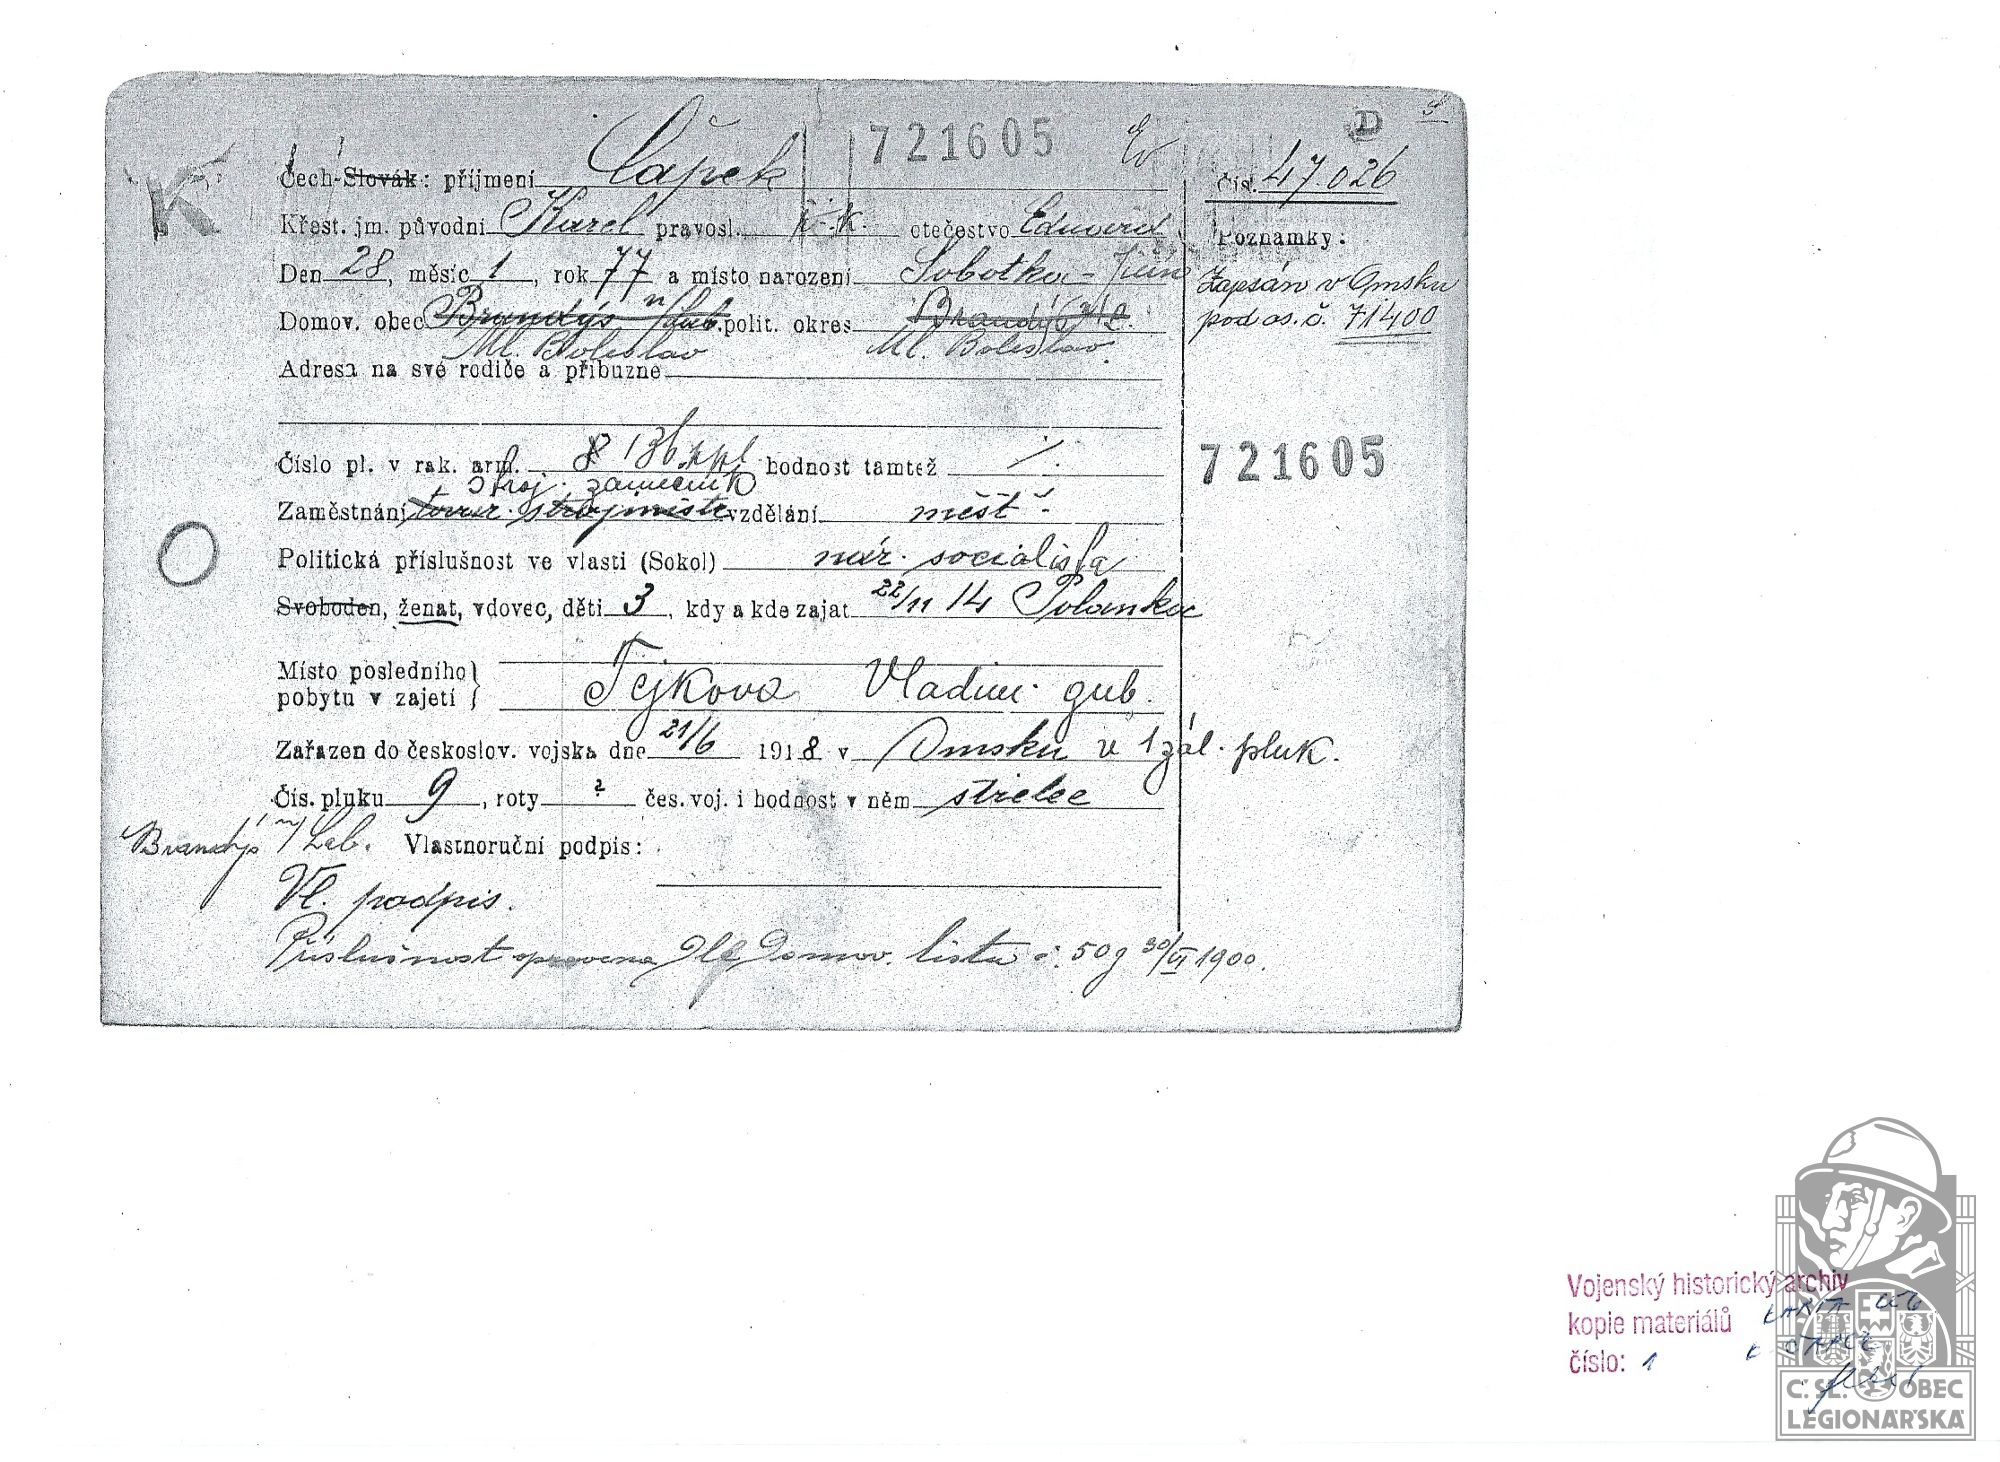 721605
D
Čech-Slovák: příjmení Čapek
Čís. 47.026
K
Křest. jm. původní Karel pravosl. ř.-k. otečestvo Eduard
Poznámky:
Den 28, měsíc 1, rok 77 a místo narození Sobotka - Jičín
Zapsán v Omsku
pod os. č. 71400
Domov. obec Brandýs n/Lab. polit. okres Brandýs n/L.
Ml. Boleslav Ml. Boleslav.
Adresa na své rodiče a příbuzné
Číslo pl. v rak. arm. 8 136. hodnost tamtéž /.
721605
stroj. zámečník
Zaměstnání továr. strojmistr vzdělání měšť.
Politická příslušnost ve vlasti (Sokol) nár. socialista
Svoboden, ženat, vdovec, děti 3, kdy a kde zajat 22/11 14 Polanka
Místo posledního
pobytu v zajetí } Tejkova Vladim. gub.
Zařazen do českoslov. vojska dne 21/6 1918 v Omsku v 1 zál. pluk.
Čís. pluku 9, roty ? čes. voj. i hodnost v něm střelec
Brandýs n/Lab. Vlastnoruční podpis:
Vl. podpis.
Příslušnost opravena dle Domov. listu č. 509 30/VI 1900.
Vojenský historický archiv
kopie materiálů
číslo: 1
KARTA LEG
K. ČAPEK
Č. SL. OBEC
LEGIONÁŘSKÁ